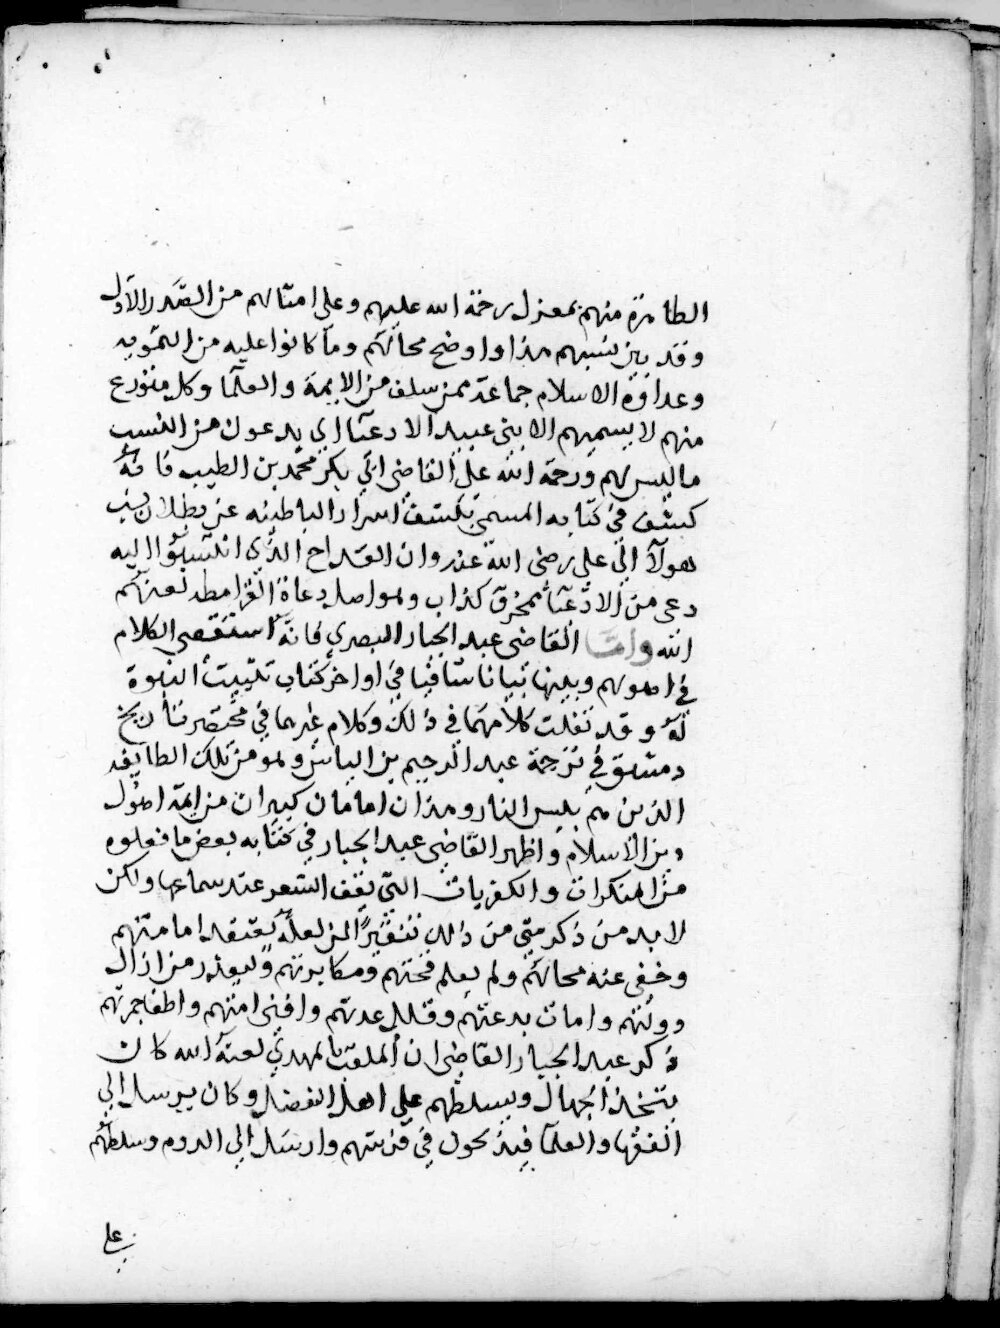 الطاهرة منهم بمعزل رحمة الله عليهم وعلى امثالهم من الصَّدر الاول
وقد بين نسبهم هذا واوضح محالهم وما كانوا عليه من التمويه
وعداوة الاسلام جماعة ممن سلف من الايمة والعلما وكل متورع
منهم لا يسميهم الا بني عبيد الادعيا اي يدعون من النسب
ما ليس لهم ورحمة الله على القاضى ابي بكر محمد بن الطيب فانه
كشف في كتابه المسمى بكشف اسرار الباطنيه عن بطلان نسب
هولآ الى علي رضى الله عنه وان القداح الذي انتسبوا اليه
دعى من الادعيا ممخرق كذاب وهو اصل دعاة القرامطه لعنهم
الله وامّا القاضى عبد الجبار البصري فانه استقصى الكلام
في اصولهم وبينها تبيانا شافيا في اواخر كتاب تثبيت النبوة
له وقد نقلت كلامهما في ذلك وكلام غيرهما في مختصر تاريخ
دمشق في ترجمة عبد الرحيم بن الياس وهو من تلك الطايفه
الذين هم بئس النار وهذان امامان كبيران من ايمة اصول
دين الاسلام واظهر القاضى عبد الجبار في كتابه بعض ما فعلوه
من المنكرات والكفريات التى يقف الشعر عند سماعها ولكن
لا بد من ذكر شي من ذلك تنفيرًا لمن لعله يعتقد امامتهم
وخفى عنه محالهم ولم يعلم قحتهم ومكابرتهم وليعذر من ازال
دولتهم وامات بدعتهم وقلل عدتهم وافنى امتهم واطفا جمرتهم
ذكر عبد الجبار القاضى ان الملقب بالمهدي لعنه الله كان
يتخذ الجهال ويسلطهم على اهل الفضل وكان يرسل الى
الفقها والعلما فيذبحون في فرشهم وارسل الى الروم وسلطهم
على